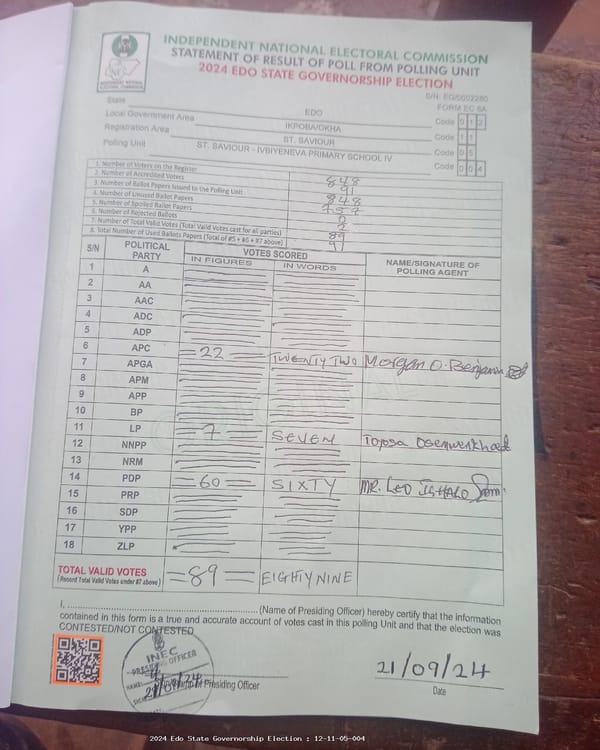 INDEPENDENT NATIONAL ELECTORAL COMMISSION
STATEMENT OF RESULT OF POLL FROM POLLING UNIT
2024 EDO STATE GOVERNORSHIP ELECTION
S/N: EG/0002280
FORM EC 8A
State EDO Code 0 1 2
Local Government Area IKPOBA/OKHA Code 1 1
Registration Area ST. SAVIOUR Code 0 5
Polling Unit ST. SAVIOUR - IVBIYENEVA PRIMARY SCHOOL IV Code 0 0 4
1. Number of Voters on the Register 848
2. Number of Accredited Voters 91
3. Number of Ballot Papers Issued to the Polling Unit 848
4. Number of Unused Ballot Papers 757
5. Number of Spoiled Ballot Papers 0
6. Number of Rejected Ballots 2
7. Number of Total Valid Votes (Total Valid Votes cast for all parties) 89
8. Total Number of Used Ballots Papers (Total of #5 + #6 + #7 above) 91
S/N POLITICAL PARTY VOTES SCORED NAME/SIGNATURE OF POLLING AGENT
IN FIGURES IN WORDS
1 A
2 AA
3 AAC
4 ADC
5 ADP
6 APC =22= TWENTY TWO Morgan O. Benjamin
7 APGA
8 APM
9 APP
10 BP
11 LP =7= SEVEN
12 NNPP
13 NRM
14 PDP =60= SIXTY MR. LEO
15 PRP
16 SDP
17 YPP
18 ZLP
TOTAL VALID VOTES =89= EIGHTY NINE
(Record Total Valid Votes under #7 above)
I, ........ (Name of Presiding Officer) hereby certify that the information
contained in this form is a true and accurate account of votes cast in this polling Unit and that the election was
CONTESTED/NOT CONTESTED
INEC
PRESIDING OFFICER
NAME:
21/09/24
Presiding Officer
21/09/24
Date
2024 Edo State Governorship Election : 12-11-05-004